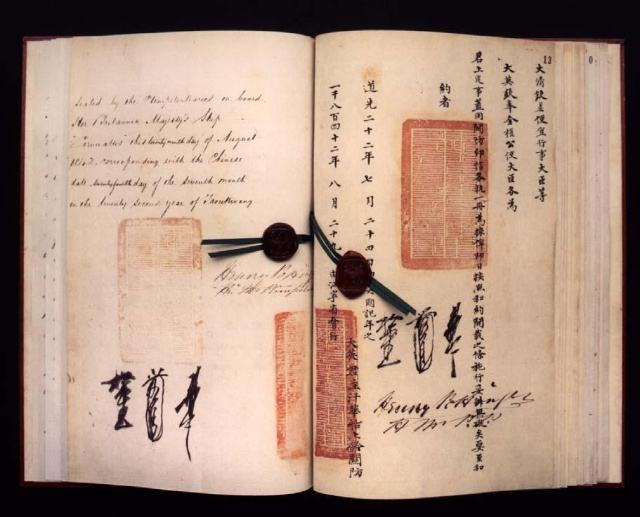 Sealed by the Plenipotentiaries on board
Her Britannic Majesty's Ship
Cornwallis this twenty ninth day of August
1842, corresponding with the Chinese
date, twenty fourth day of the seventh month
in the twenty second year of Taoukwang
Henry
13
0
大清欽差便宜行事大臣等
大英欽奉全權公使大臣各為
君上定事蓋用關防印信各執一冊為據俾即日按照和約開載之條施行妥辦無礙矣要至和
約者
道光二十二年七月二十四日即英國記年之
一千八百四十二年八月二十九日由江寧省會行
大英君主汗華船上鈐關防
Henry Pottinger